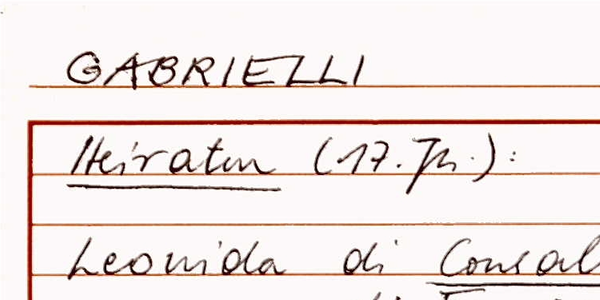 GABRIELLI
Heiraten (17. Jh.):
Leonida di Consal
di